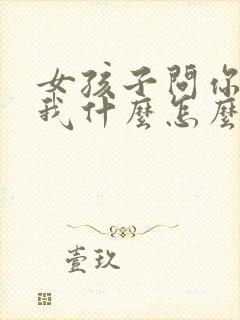 女孩子問你
我什麼怎麼
壹玖